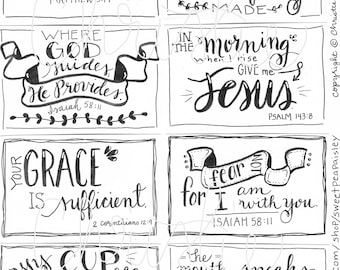 MATTHEW 5:11
MADE
WHERE
GOD
Guides,
He Provides
Isaiah 58:11
IN THE morning
when I rise
GIVE me
Jesus
PSALM 143:8
YOUR
GRACE
IS sufficient.
2 corinthians 12:9
fear NOT
for I am
with you.
ISAIAH 58:11
CUP
The mouth speaks
copyright ©
/shop/sweetpeapaisley